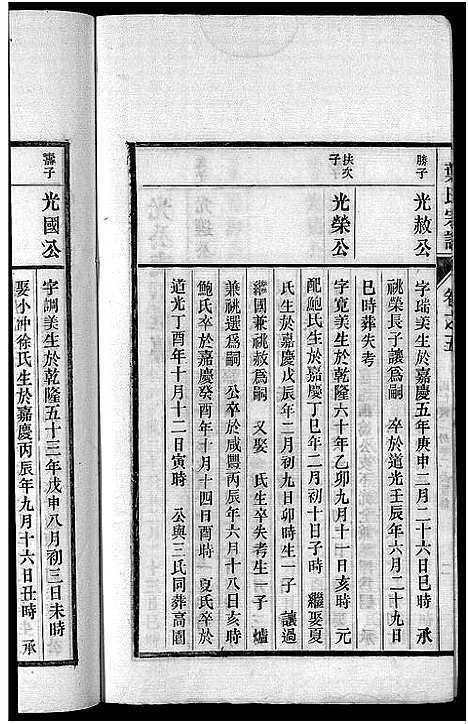 葉氏宗譜
卷之五
勝子
光赦公
字瑞美生於嘉慶五年庚申二月二十六日巳時 承
祧榮長子讓爲嗣 卒於道光壬辰年六月二十九日
巳時葬失考
扶次子
光榮公
字寬美生於乾隆六十年乙卯九月十一日亥時 元
配鮑氏生於嘉慶丁巳年二月初十日子時 繼娶夏
氏生於嘉慶戊辰年二月初九日卯時生一子 讓過
繼國兼祧赦爲嗣 又娶 氏生卒失考生一子 爐
兼祧選爲嗣 公卒於咸豐丙辰年六月十八日亥時
鮑氏卒於嘉慶癸酉年十月十四日寅時 夏氏卒於
道光丁酉年十月十二日寅時 公與三氏同葬高園
壽子
光國公
字調美生於乾隆五十三年戊申八月初三日未時
娶小沖徐氏生於嘉慶丙辰年九月十六日丑時 承